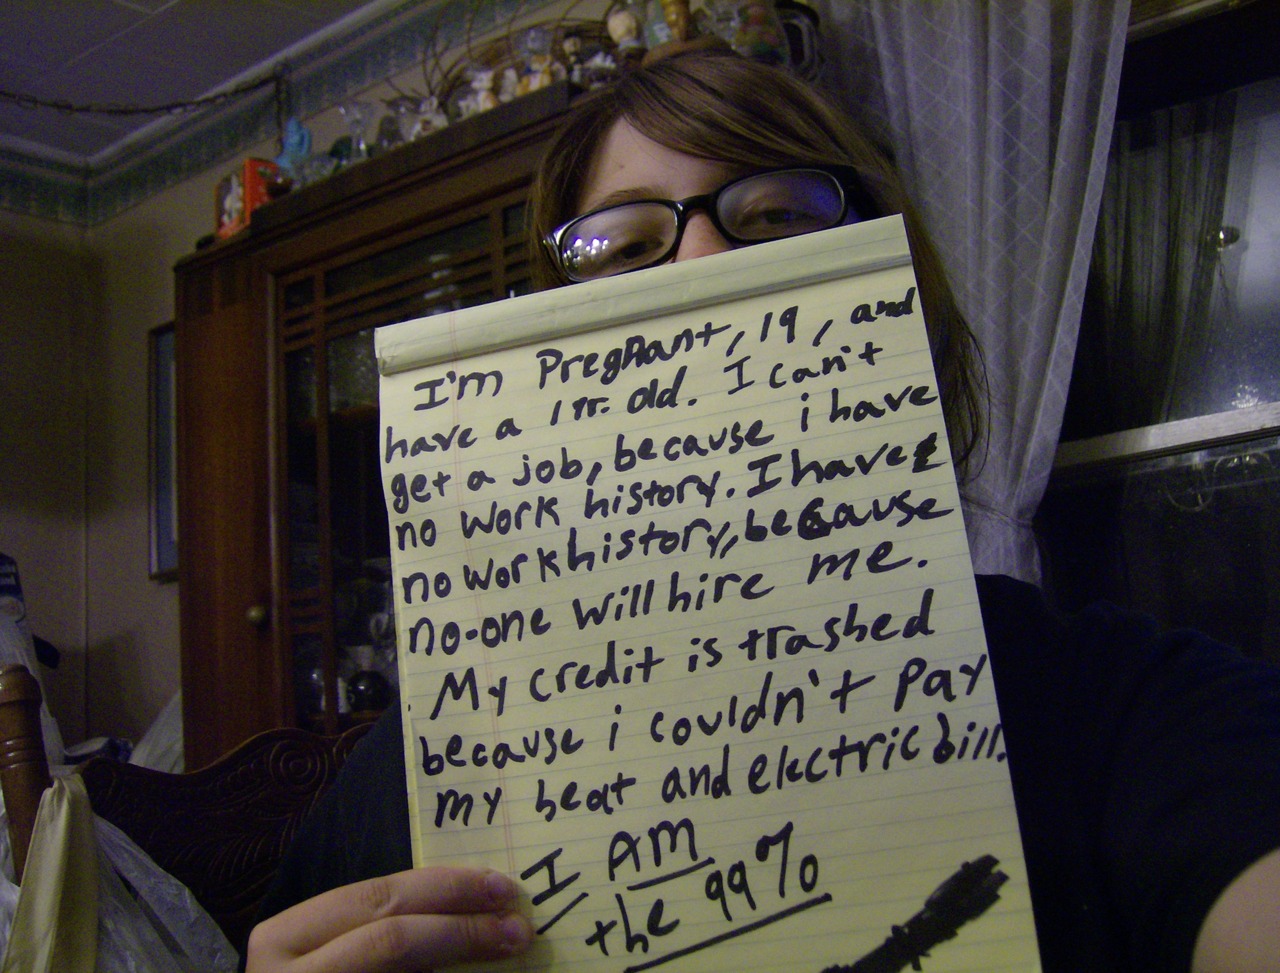 I'm Pregnant, 19, and
have a 1 yr. old. I can't
get a job, because i have
no work history. I have
no work history, because
no-one will hire me.
My credit is trashed
because i couldn't pay
my heat and electric bill.
I AM
the 99%